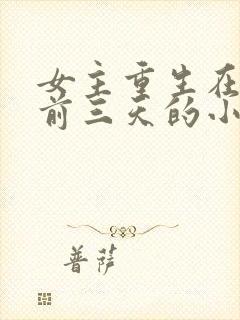 女主重生在
前三天的小
菩萨